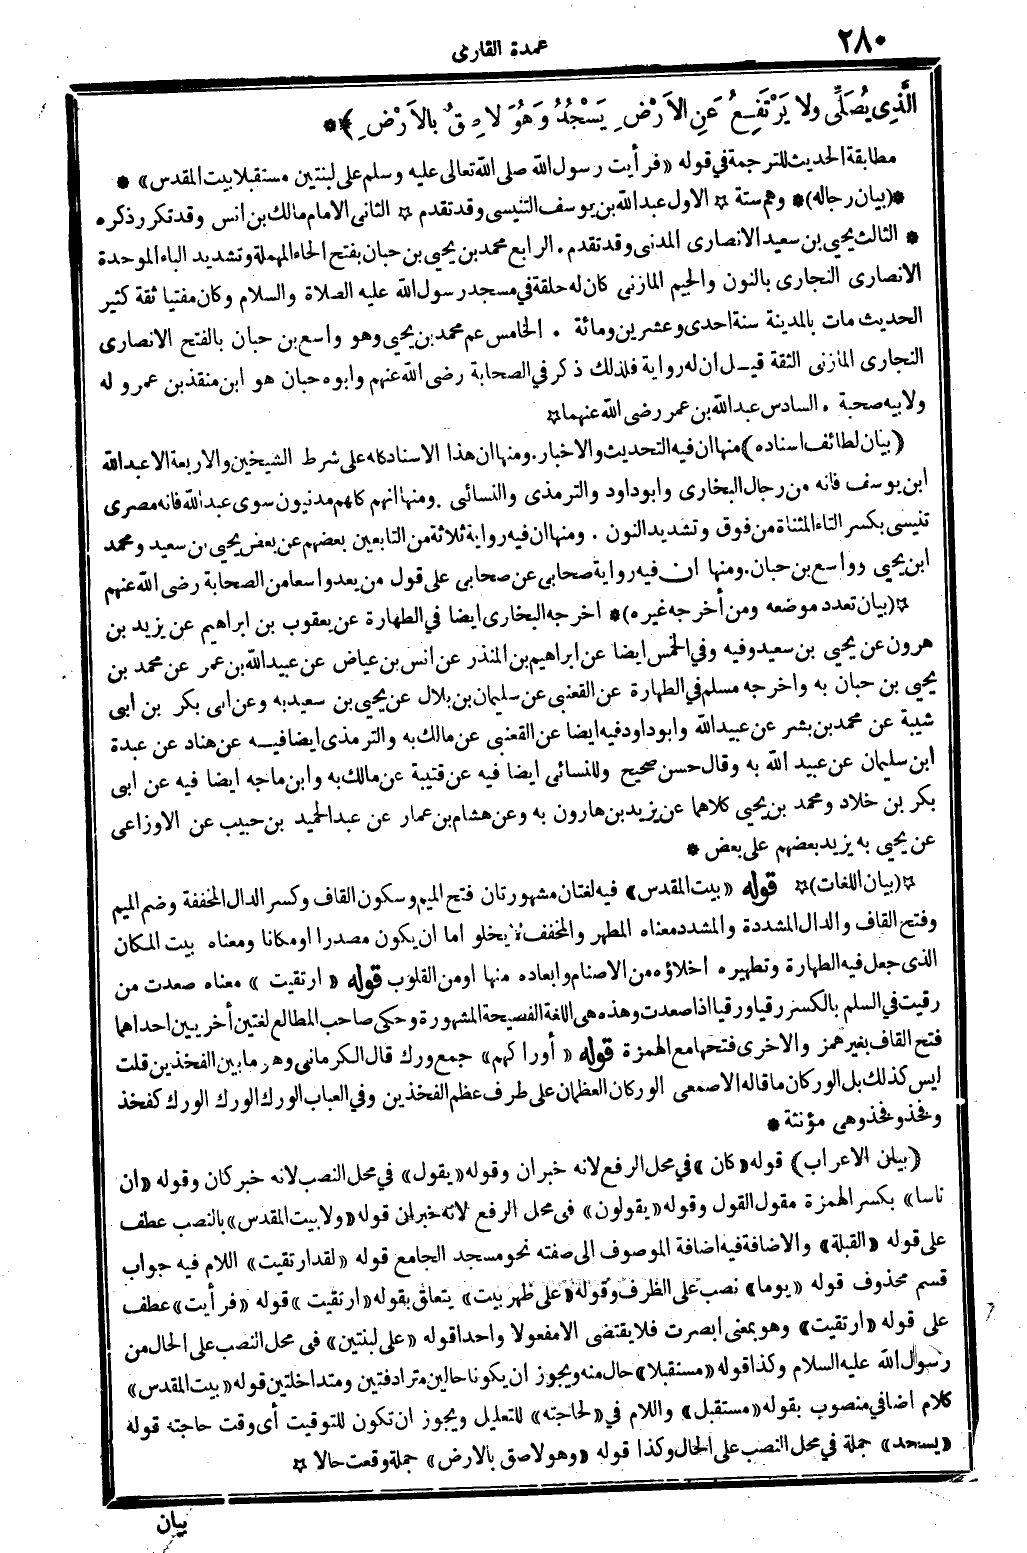 ٢٨٠
عمدة القارى
الَّذِى يُصَلِّى ولا يَرْتَفِعُ عَنِ الأَرْضِ يَسْجُدُ وَهُوَ لاصِقٌ بالأَرْضِ ﴾ *
مطابقة الحديث للترجمة فى قوله «فرأيت رسول الله صلى الله تعالى عليه وسلم على لبنتين مستقبلا بيت المقدس» *
*(بيان رجاله)* وهم ستة ☆ الاول عبدالله بن يوسف التنيسى وقد تقدم ☆ الثانى الامام مالك بن انس وقد تكرر ذكره
* الثالث يحيى بن سعيد الانصارى المدنى وقد تقدم . الرابع محمد بن يحيى بن حبان بفتح الحاء المهملة وتشديد الباء الموحدة
الانصارى النجارى بالنون والجيم المازنى كان له حلقة فى مسجد رسول الله عليه الصلاة والسلام وكان مفتيا ثقة كثير
الحديث مات بالمدينة سنة احدى وعشرين ومائة . الخامس عم محمد بن يحيى وهو واسع بن حبان بالفتح الانصارى
النجارى المازنى الثقة قيل ان له رواية فلذلك ذكر فى الصحابة رضى الله عنهم وابوه حبان هو ابن منقذ بن عمرو له
ولابيه صحبة . السادس عبدالله بن عمر رضى الله عنهما ☆
(بيان لطائف اسناده) منها ان فيه التحديث والاخبار . ومنها ان هذا الاسناد كله على شرط الشيخين والاربعة الا عبدالله
ابن يوسف فانه من رجال البخارى وابو داود والترمذى والنسائى . ومنها انهم كلهم مدنيون سوى عبدالله فانه مصرى
تنيسى بكسر التاء المثناة من فوق وتشديد النون . ومنها ان فيه رواية ثلاثة من التابعين بعضهم عن بعض يحيى بن سعيد ومحمد
ابن يحيى وواسع بن حبان . ومنها ان فيه رواية صحابى عن صحابى على قول من يعد واسعا من الصحابة رضى الله عنهم
☆(بيان تعدد موضعه ومن أخرجه غيره)* اخرجه البخارى ايضا فى الطهارة عن يعقوب بن ابراهيم عن يزيد بن
هرون عن يحيى بن سعيد وفيه وفى الخمس ايضا عن ابراهيم بن المنذر عن انس بن عياض عن عبيدالله بن عمر عن محمد بن
يحيى بن حبان به واخرجه مسلم فى الطهارة عن القعنبى عن سليمان بن بلال عن يحيى بن سعيد به وعن ابى بكر بن ابى
شيبة عن محمد بن بشر عن عبيدالله وابو داود فيه ايضا عن القعنبى عن مالك به والترمذى ايضا فيه عن هناد عن عبدة
ابن سليمان عن عبيد الله به وقال حسن صحيح وللنسائى ايضا فيه عن قتيبة عن مالك به وابن ماجه ايضا فيه عن ابى
بكر بن خلاد ومحمد بن يحيى كلاهما عن يزيد بن هارون به وعن هشام بن عمار عن عبد الحميد بن حبيب عن الاوزاعى
عن يحيى به يزيد بعضهم على بعض *
☆(بيان اللغات)☆ قوله «بيت المقدس» فيه لغتان مشهورتان فتح الميم وسكون القاف وكسر الدال المخففة وضم الميم
وفتح القاف والدال المشددة والمشدد معناه المطهر والمخفف لا يخلو اما ان يكون مصدرا او مكانا ومعناه بيت المكان
الذى جعل فيه الطهارة وتطهيره اخلاؤه من الاصنام وابعاده منها او من القلوب قوله «ارتقيت» معناه صعدت من
رقيت فى السلم بالكسر رقيا ورقيا اذا صعدت وهذه هى اللغة الفصيحة المشهورة وحكى صاحب المطالع لغتين أخريين احداهما
فتح القاف بغير همز والاخرى فتحها مع الهمزة قوله «أوراكهم» جمع ورك قال الكرمانى وهو ما بين الفخذين قلت
ليس كذلك بل الوركان ما قاله الاصمعى الوركان العظمان على طرف عظم الفخذين وفى العباب الورك الورك الورك كفخذ
وفخذ وفخذ وهى مؤنثة *
(بيان الاعراب) قوله «كان» فى محل الرفع لانه خبر ان وقوله «يقول» فى محل النصب لانه خبر كان وقوله «ان
ناسا» بكسر الهمزة مقول القول وقوله «يقولون» فى محل الرفع لانه خبر ان قوله «ولا بيت المقدس» بالنصب عطف
على قوله «القبلة» والاضافة فيه اضافة الموصوف الى صفته نحو مسجد الجامع قوله «لقد ارتقيت» اللام فيه جواب
قسم محذوف قوله «يوما» نصب على الظرف وقوله «على ظهر بيت» يتعلق بقوله «ارتقيت» قوله «فرأيت» عطف
على قوله «ارتقيت» وهو بمعنى ابصرت فلا يقتضى الا مفعولا واحدا قوله «على لبنتين» فى محل النصب على الحال من
رسول الله عليه السلام وكذا قوله «مستقبلا» حال منه ويجوز ان يكونا حالين مترادفتين ومتداخلتين قوله «بيت المقدس»
كلام اضافى منصوب بقوله «مستقبل» واللام فى «لحاجته» للتعليل ويجوز ان تكون للتوقيت أى وقت حاجته قوله
«يسجد» جملة فى محل النصب على الحال وكذا قوله «وهو لاصق بالارض» جملة وقعت حالا ☆
بيان